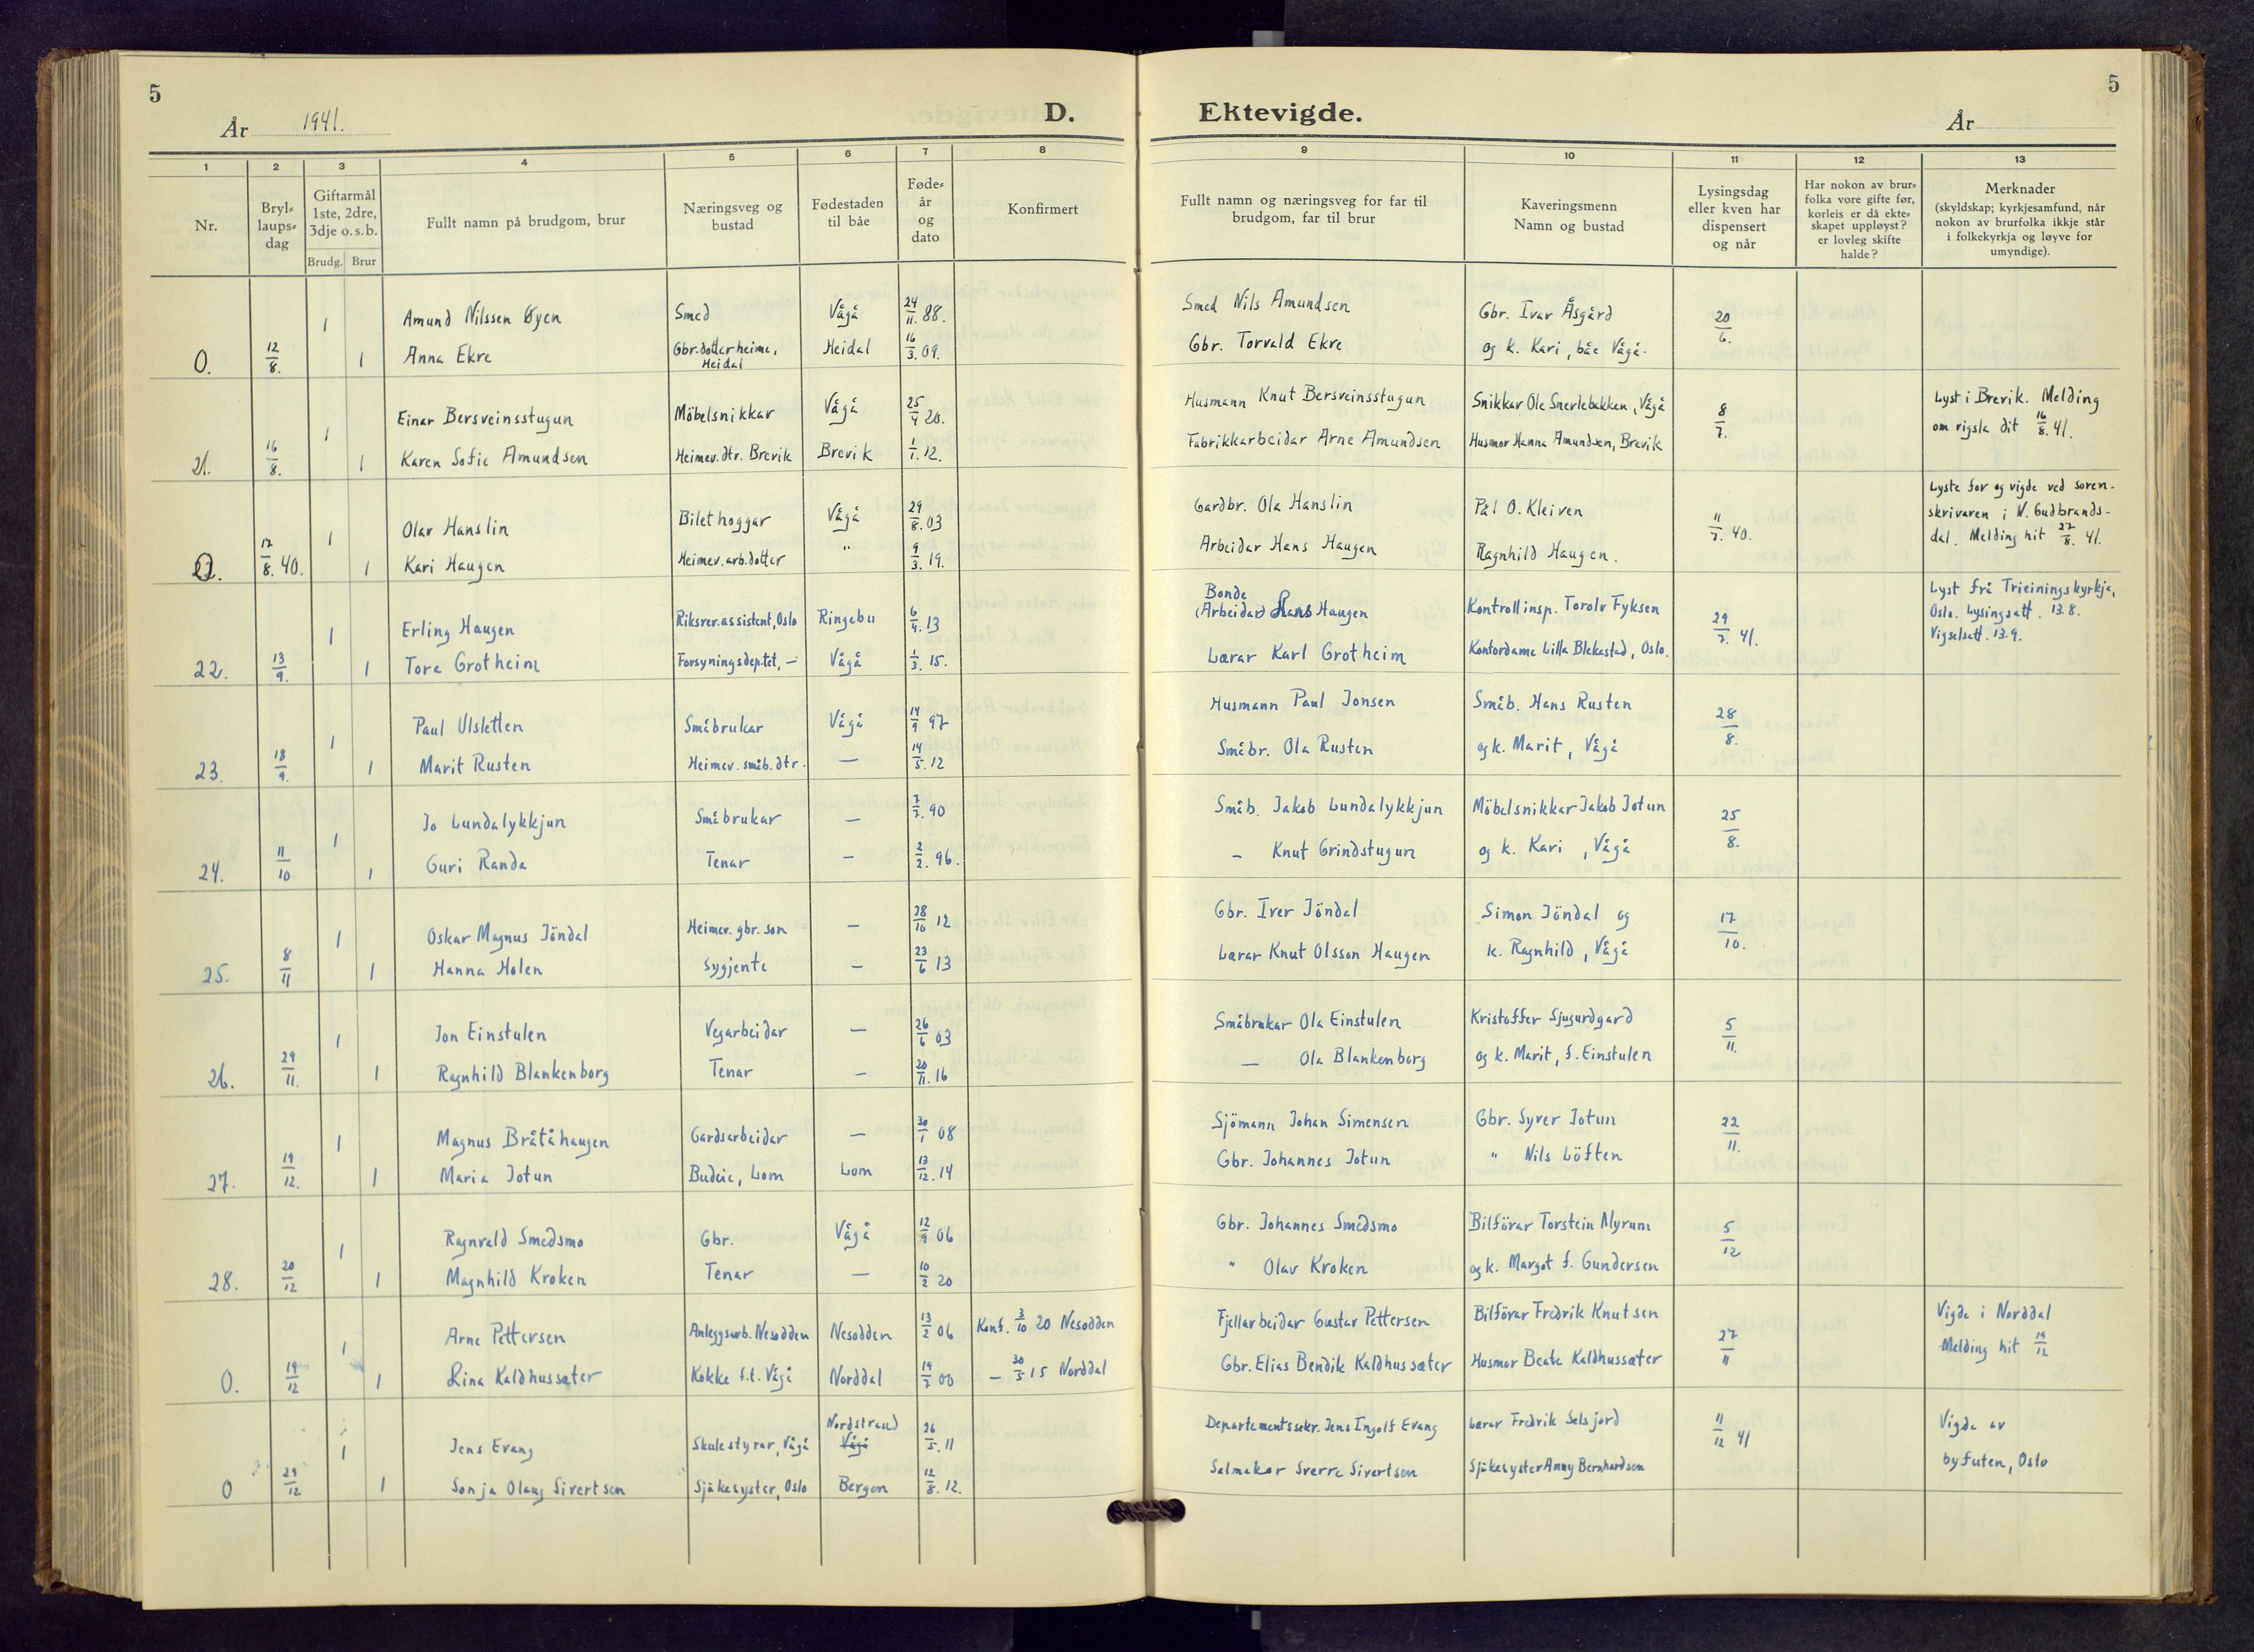 5
År 1941.
D.
Ektevigde.
År
5
1 2 3 4 5 6 7 8 9 10 11 12 13
Nr.
Bryl-
laups-
dag
Giftarmål
1ste, 2dre,
3dje o. s. b.
Brudg. Brur
Fullt namn på brudgom, brur
Næringsveg og
bustad
Fødestaden
til båe
Føde-
år
og
dato
Konfirmert
Fullt namn og næringsveg for far til
brudgom, far til brur
Kaveringsmenn
Namn og bustad
Lysingsdag
eller kven har
dispensert
og når
Har nokon av brur-
folka vore gifte før,
korleis er då ekte-
skapet uppløyst?
er lovleg skifte
halde?
Merknader
(skyldskap; kyrkjesamfund, når
nokon av brurfolka ikkje står
i folkekyrkja og løyve for
umyndige).
1 Amund Nilssen Øyen Smed Vågå 24/11. 88. Smed Nils Amundsen Gbr. Ivar Åsgård 20/6.
0. 12/8. 1 Anna Ekre Gbr.dotter heime, Heidal Heidal 16/3. 09. Gbr. Torvald Ekre og k. Kari, båe Vågå.
1 Einar Bersveinsstugun Möbelsnikkar Vågå 25/4 20. Husmann Knut Bersveinsstugun Snikkar Ole Snerlebakken, Vågå 8/7. Lyst i Brevik. Melding
21. 16/8. 1 Karen Sofie Amundsen Heimev. dtr. Brevik Brevik 1/1. 12. Fabrikkarbeidar Arne Amundsen Husmor Hanna Amundsen, Brevik om vigsla dit 16/8. 41.
1 Olav Hanslin Bilethoggar Vågå 29/8. 03 Gardbr. Ola Hanslin Pål O. Kleiven 11/7. 40. Lyste for og vigde ved soren-
skrivaren i N. Gudbrands-
0. 17/8. 40. 1 Kari Haugen Heimev. arb.dotter " 9/3. 19. Arbeidar Hans Haugen Ragnhild Haugen. dal. Melding hit 27/8. 41.
1 Erling Haugen Riksrev.assistent, Oslo Ringebu 6/4. 13 Bonde (Arbeidar) Hans Haugen Kontrollinsp. Torolv Fyksen 29/7. 41. Lyst frå Trieiningskyrkja,
Oslo. Lysingsatt. 13.8.
22. 13/9. 1 Tora Grotheim Forsyningsdep.tet, — Vågå 1/3. 15. Lærar Karl Grotheim Kontordame Lilla Blekastad, Oslo. Vigselsatt. 13.9.
1 Paul Ulsletten Småbrukar Vågå 14/9 97 Husmann Paul Jonsen Småb. Hans Rusten 28/8.
23. 18/9. 1 Marit Rusten Heimev. småb. dtr. — 14/5. 12 Småbr. Ola Rusten og k. Marit, Vågå
1 Jo Lundalykkjun Småbrukar — 7/7. 90 Småb. Jakob Lundalykkjun Möbelsnikkar Jakob Jotun 25/8.
24. 11/10 1 Guri Randa Tenar — 2/2. 96. — Knut Grindstugun og k. Kari, Vågå
1 Oskar Magnus Jöndal Heimev. gbr. son — 28/10 12 Gbr. Iver Jöndal Simon Jöndal og 17/10.
25. 8/11 1 Hanna Holen Sygjente — 23/6 13 Lærar Knut Olsson Haugen k. Ragnhild, Vågå
1 Jon Einstulen Vegarbeidar — 26/6 03 Småbrukar Ola Einstulen Kristoffer Sjugurdgard 5/11.
26. 29/11. 1 Ragnhild Blankenborg Tenar — 20/11. 16 — Ola Blankenborg og k. Marit, f. Einstulen
1 Magnus Bråtåhaugen Gardsarbeidar — 30/1 08 Sjömann Johan Simensen Gbr. Syver Jotun 22/11.
27. 19/12. 1 Maria Jotun Budeie, Lom Lom 13/12. 14 Gbr. Johannes Jotun " Nils Löften
1 Ragnvald Smedsmo Gbr. Vågå 12/9 06 Gbr. Johannes Smedsmo Bilförar Torstein Myrum 5/12
28. 20/12 1 Magnhild Kroken Tenar — 10/2 20 " Olav Kroken og k. Margot f. Gundersen
1 Arne Pettersen Anleggsarb. Nesodden Nesodden 13/2 06 Konf. 3/10 20 Nesodden Fjellarbeidar Gustav Pettersen Bilförar Fredrik Knutsen 27/11 Vigde i Norddal
0. 19/12 1 Lina Kaldhussæter Kokke f.t. Vågå Norddal 19/7 00 — 30/5 15 Norddal Gbr. Elias Bendik Kaldhussæter Husmor Beate Kaldhussæter Melding hit 19/12
1 Jens Evang Skulestyrar, Vågå Nordstrand Vågå 26/5. 11 Departementssekr. Jens Ingolf Evang Lærar Fredrik Selsjord 11/12 41 Vigde av
0 29/12 1 Sonja Olaug Sivertsen Sjukesyster, Oslo Bergen 12/8. 12. Salmaker Sverre Sivertsen Sjukesyster Anny Bernhardsen byfuten, Oslo